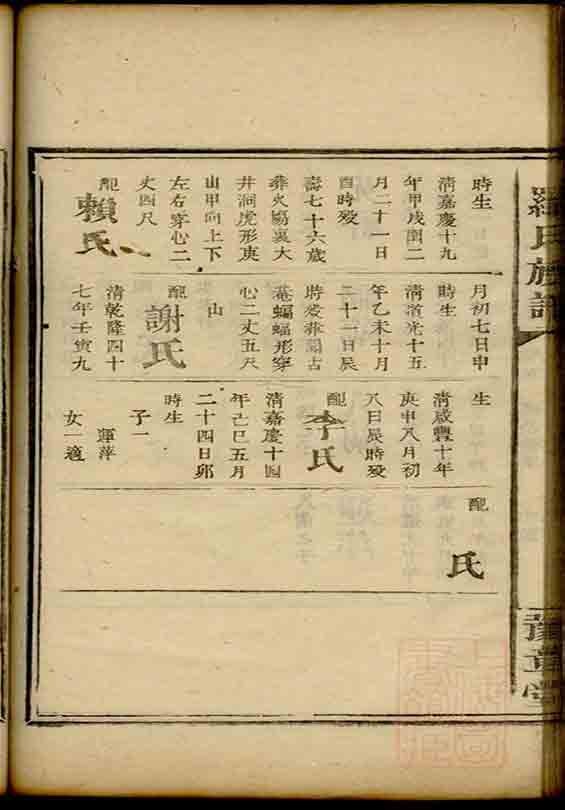 羅氏族譜
豫章堂
時生
清嘉慶十九
年甲戌閏二
月二十一日
酉時歿
壽七十六歲
葬火
裏大
井洞虎形庚
山甲向上下
左右穿心二
丈四尺
配
賴氏
月初七日申
時生
清道光十五
年乙未十月
二十一日辰
時歿葬
古
菴蝙蝠形穿
心二丈五尺
山
配
謝氏
清乾隆四十
七年壬寅九
生
清咸豐十年
庚申八月初
八日辰時歿
配
李氏
清嘉慶十四
年己巳五月
二十四日卯
時生
子一
運萍
女一適
配
氏